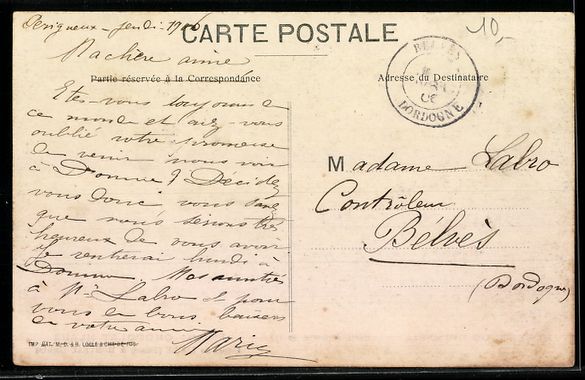 Périgueux - Jeudi - 1906
CARTE POSTALE
10,-
Ma chère amie
Partie réservée à la Correspondance
Adresse du Destinataire
BELVÈS
06
DORDOGNE
Etes-vous toujours de
ce monde et avez-vous
oublié votre promesse
de venir nous voir
à Domme? Décidez
vous donc vous
que nous serions très
heureux de vous avoir
je rentrerai lundi à
Domme
à Mr Labro et pour
vous en bons baisers
de votre amie
Marie
Madame Labro
Contrôleur
Bélvès
(Dordogne)